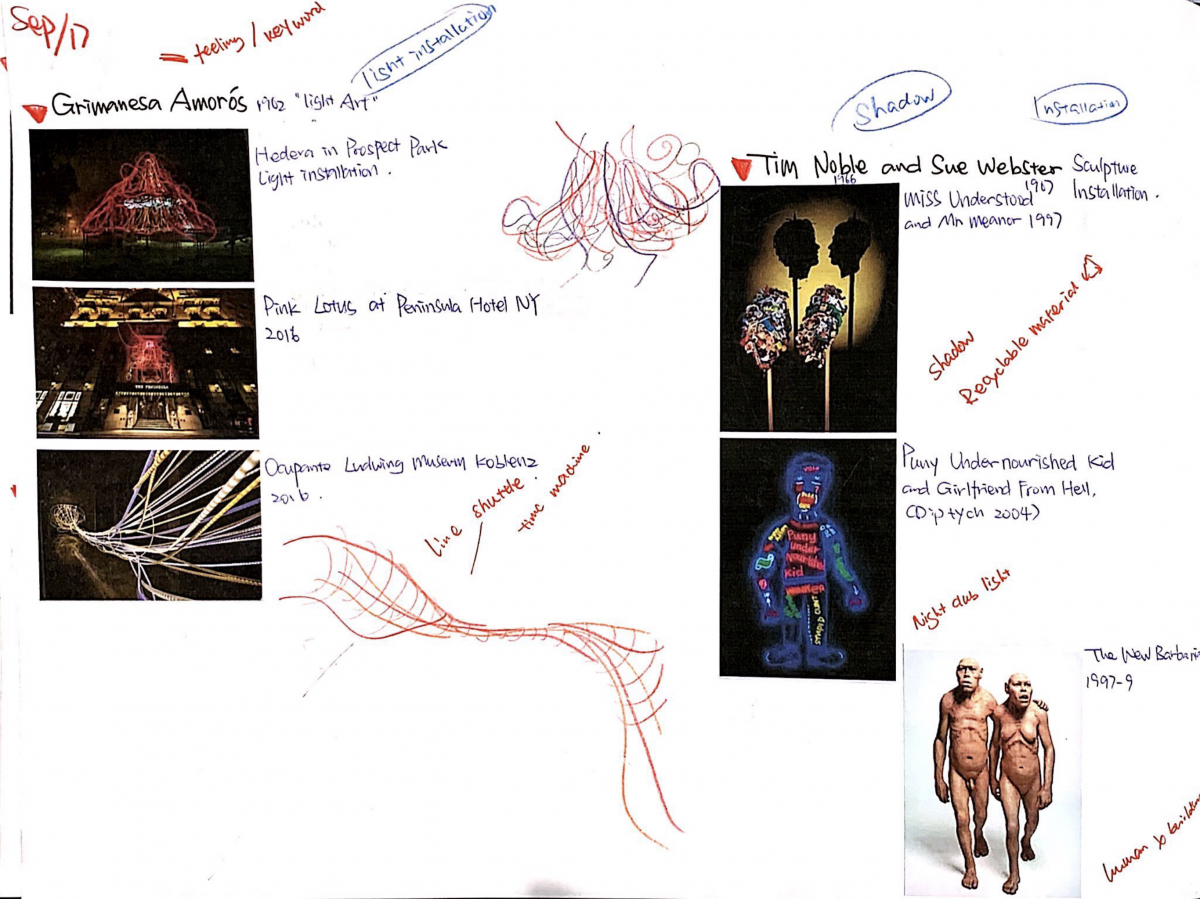 Sep/17
= feeling / keyword
light installation
Grimanesa Amorós 1962 "light Art"
Hedera in Prospect Park
Light installation.
Pink Lotus at Peninsula Hotel NY
2016
THE PENINSULA
Ocupante Ludwing Museum Koblenz
2016.
Line shuttle.
time machine
Shadow
Installation
Tim Noble and Sue Webster Sculpture
1966
1967
Installation.
Miss Understood
and Mr Meanor 1997
Shadow
Recyclable material
Puny Undernourished Kid
and Girlfriend From Hell,
(Diptych 2004)
Puny
Under
Kid
STUPID CUNT
Night club light
The New Barbari
1997-9
human